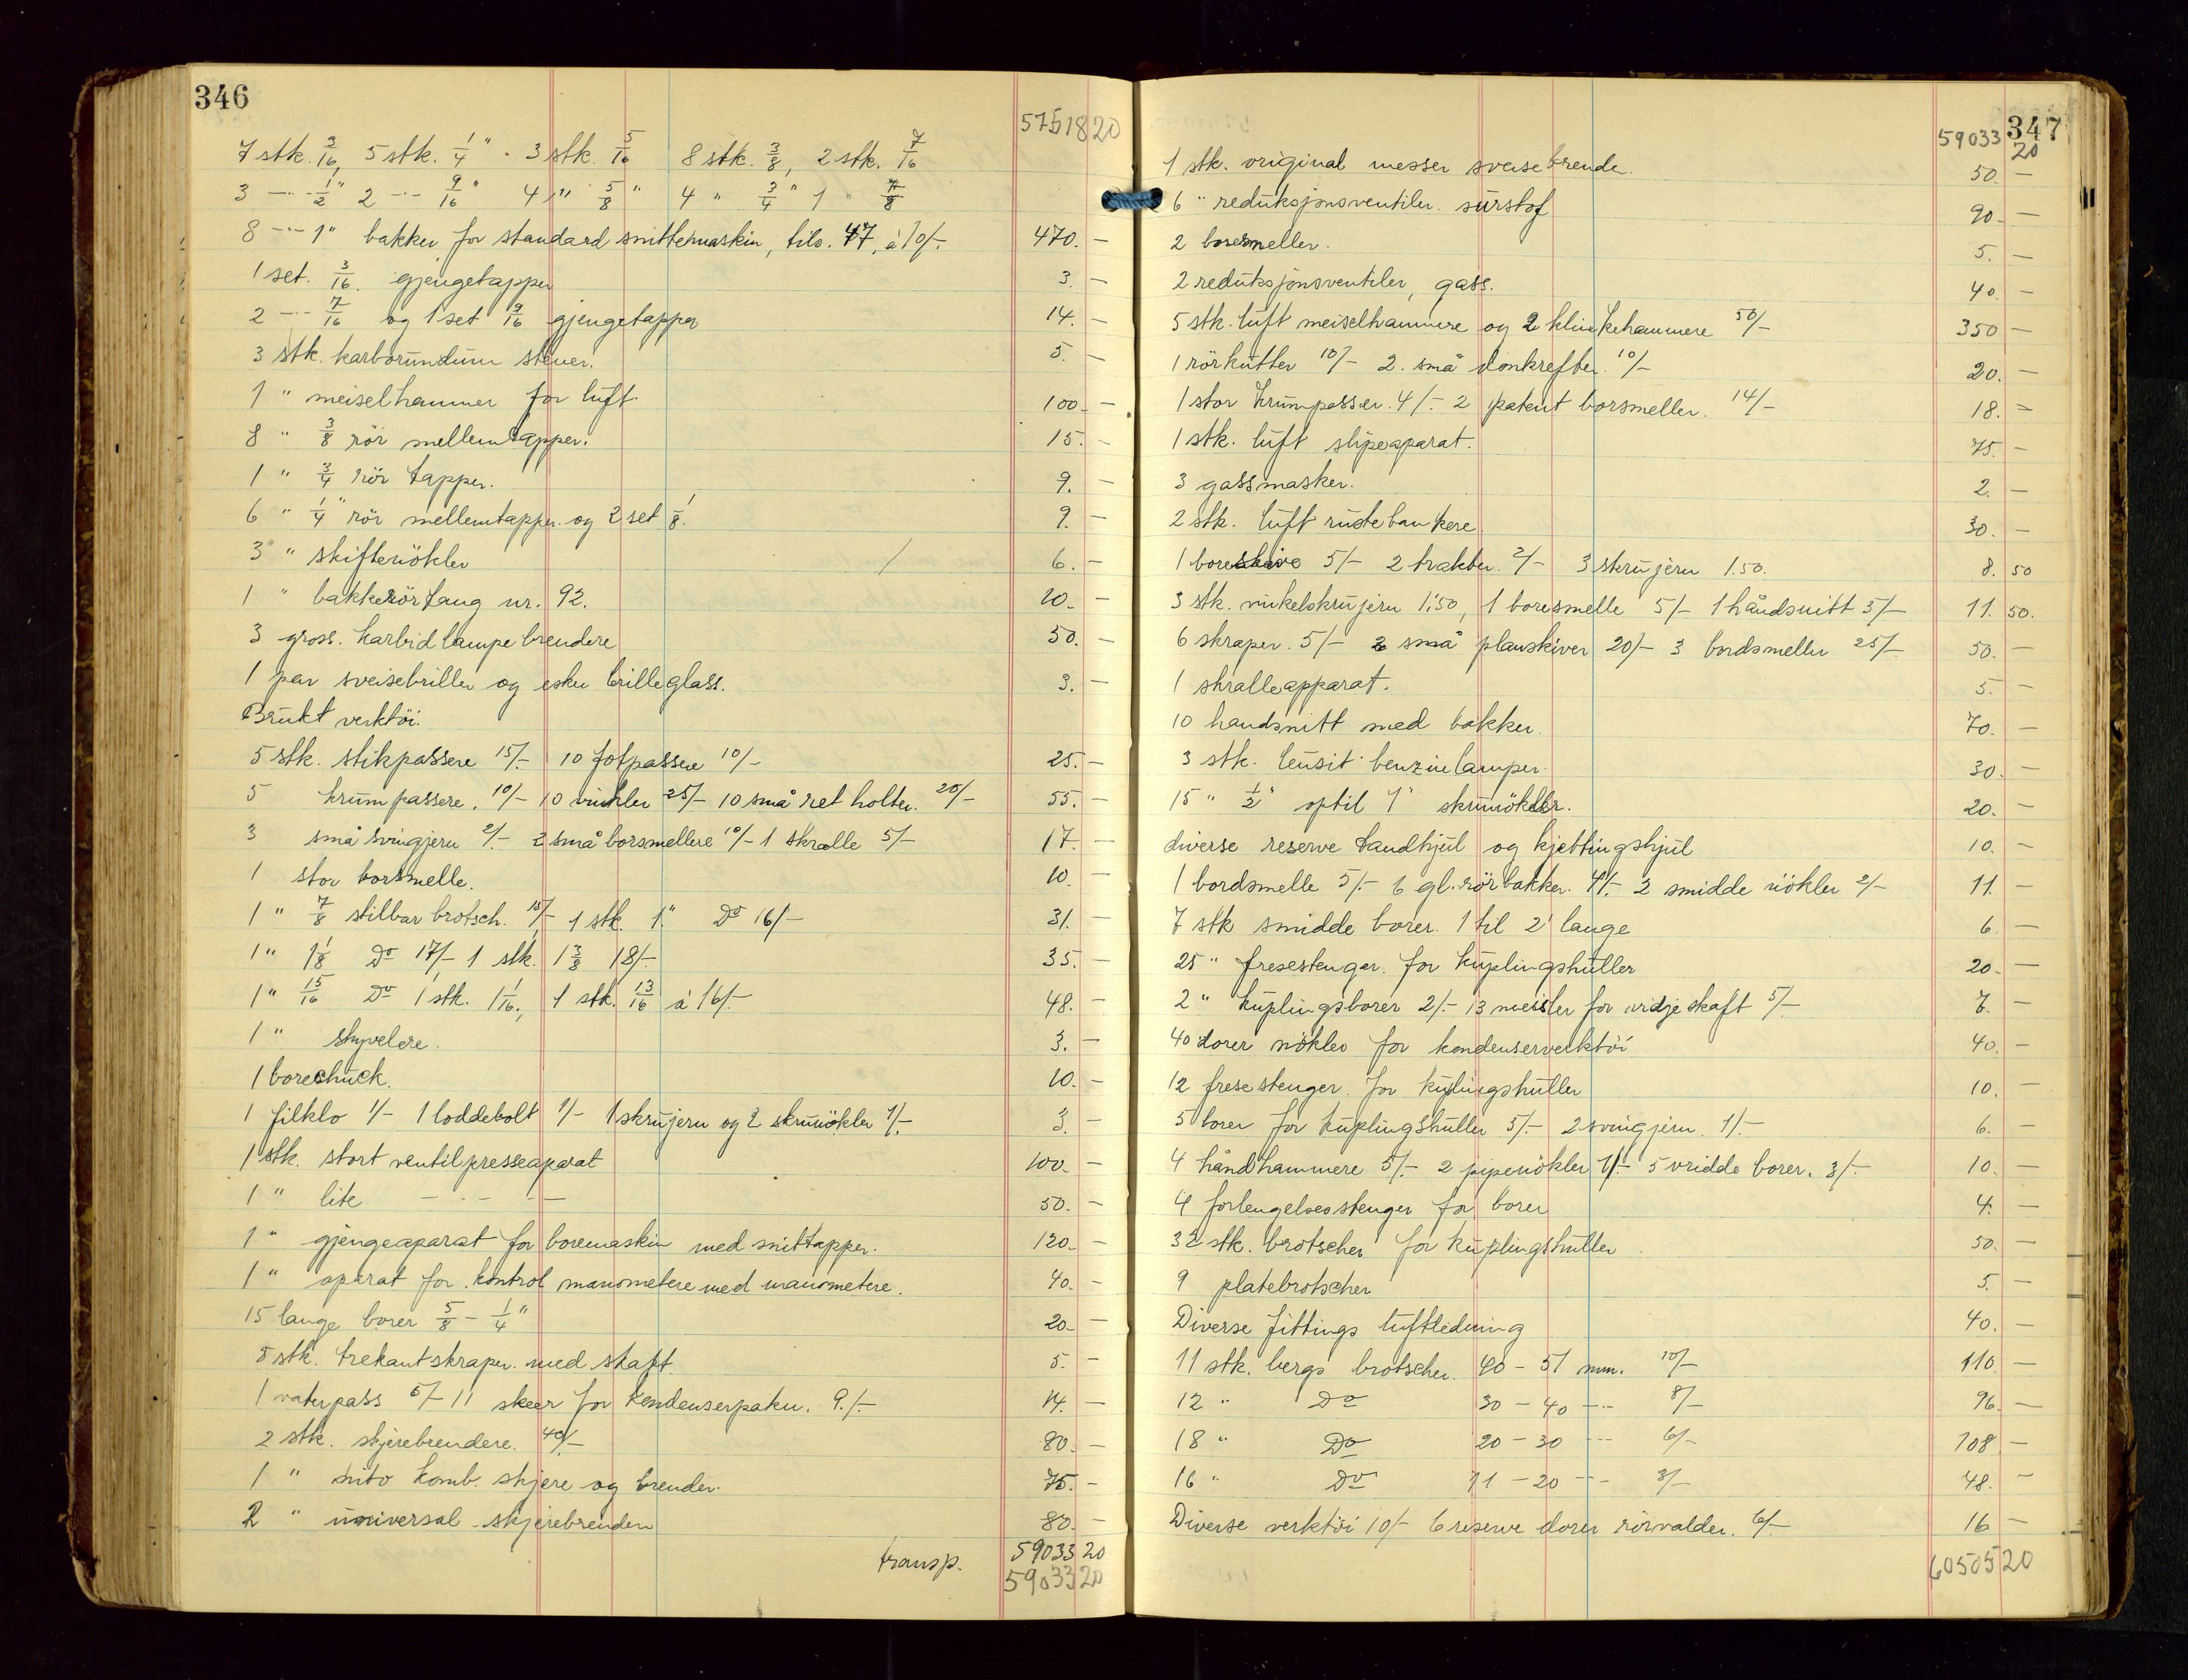 346
57518 20
7 stk. 3/16, 5 stk. 1/4" . 3 stk. 5/16 8 stk. 3/8, 2 stk. 7/16
3 -"- 1/2" 2 -"- 9/16" 4 " 5/8" 4 " 3/4" 1 " 7/8
8 -"- 1" bakker for standard snittemaskin, tils. 47, à 10/- 470. -
1 set. 3/16. gjengetapper 3. -
2 -"- 7/16 og 1 set 9/16 gjengetapper 14. -
3 stk. karborundum stener. 5. -
1 " meiselhammer for luft. 100. -
8 " 3/8 rör mellemtapper. 15. -
1 " 3/4 rör tapper. 9. -
6 " 1/4" rör mellemtapper. og 2 set 1/8. 9. -
3 " skiftenökler / 6. -
1 " bakkerörtang nr. 92. 20. -
3 gross. karbidlampebrendere 50. -
1 par sveisebriller og eske brilleglass. 3. -
Brukt verktöi.
5 stk. stikpassere 15/- 10 fotpassere 10/- 25. -
5 krumpassere. 10/- 10 vinkler 25/- 10 små ret holter. 20/- 55. -
3 små svingjern 2/- 2 små borsmellere 10/- 1 skralle 5/- 17. -
1 stor borsmelle. 10. -
1 " 7/8 stilbar brotsch. 15/- 1 stk. 1." Do 16/- 31. -
1 " 1 1/8 Do 17/- 1 stk. 1 3/8 18/- 35. -
1 " 15/16 Do 1 stk. 1 1/16., 1 stk. 13/16 à 16/- 48. -
1 " styvelere. 3. -
1 borechuck. 10. -
1 filklo 1/- 1 loddebolt 1/- 1 skrujern og 2 skrunökler 1/- 3. -
1 stk. stort ventilpresseaparat 100. -
1 " lite - - - - 50. -
1 " gjengeaparat for boremaskin med snittapper. 120. -
1 " aparat for kontrol manometere med manometere. 40. -
15 lange borer 5/8 - 1/4" 20. -
8 stk. trekantskraper. med skaft. 5. -
1 vaterpass 5/- 11 skeer for kondenserpakn. 9./- 14. -
2 stk. skjærebrendere. 40/- 80. -
1 " nito komb. skjere og brender. 75. -
2 " universal skjerebrender 80. -
transp. 59033 20
59033 20
347
59033 20
1 stk. original messer sveisebrender. 50. -
6 " reduksjonsventiler. surstof 90 -
2 boresmeller. 5. -
2 reduksjonsventiler, gass. 40. -
5 stk. luft meiselhammere og 2 klinkehammere 50/- 350 -
1 rörkutter 10/- 2. små donkrefter. 10/- 20. -
1 stor krumpasser. 4/- 2 patent borsmeller. 14/- 18. -
1 stk. luft slipeaparat. 75. -
3 gassmasker. 2. -
2 stk. luft rustebankere. 30. -
1 boreskive 5/- 2 trakter. 2/- 3 skrujern 1.50. 8. 50
3 stk. vinkelskrujern 1,50, 1 boresmelle 5/- 1 håndsnitt 5/- 11. 50.
6 skraper. 5/- 2 små planskiver 20/- 3 bordsmeller 25/- 50. -
1 skralleapparat. 5. -
10 handsnitt med bakker. 70. -
3 stk. leusit benzinelamper. 30. -
15 " 1/2" optil 1" skrunökler. 20. -
diverse reserve tandhjul og kjettingshjul 10. -
1 bordsmelle 5/- 6 gl. rörbakker. 4/- 2 smidde nökler 2/- 11. -
7 stk smidde borer. 1 til 2' lange 6. -
25 " fresestenger. for kuplingshuller 20. -
2 " kuplingsborer 2/- 13 meisler for vridje skaft 5/- 7. -
40 dorer nökler for kondenserverktöi 40. -
12 fresestenger. for kuplingshuller 10. -
5 borer for kuplingshuller 5/- 2 svingjern. 1/- 6. -
4 håndhammere 5/- 2 pipenökler 1/- 5 vridde borer. 3/- 10. -
4 forlengelsesstenger for borer 4. -
32 stk. brotscher for kuplingshuller 50. -
9 platebrotscher 5. -
Diverse fittings luftledning 40. -
11 stk. bergs brotscher. 40 - 51 mm. 10/- 110 -
12 " Do 30 - 40 -"- 8/- 96. -
18 " Do 20 - 30 -"- 6/- 108 -
16 " Do 11 - 20 -"- 3/- 48. -
Diverse verktöi 10/- 6 reserve dorer rörvalder. 6/- 16 -
60505 20